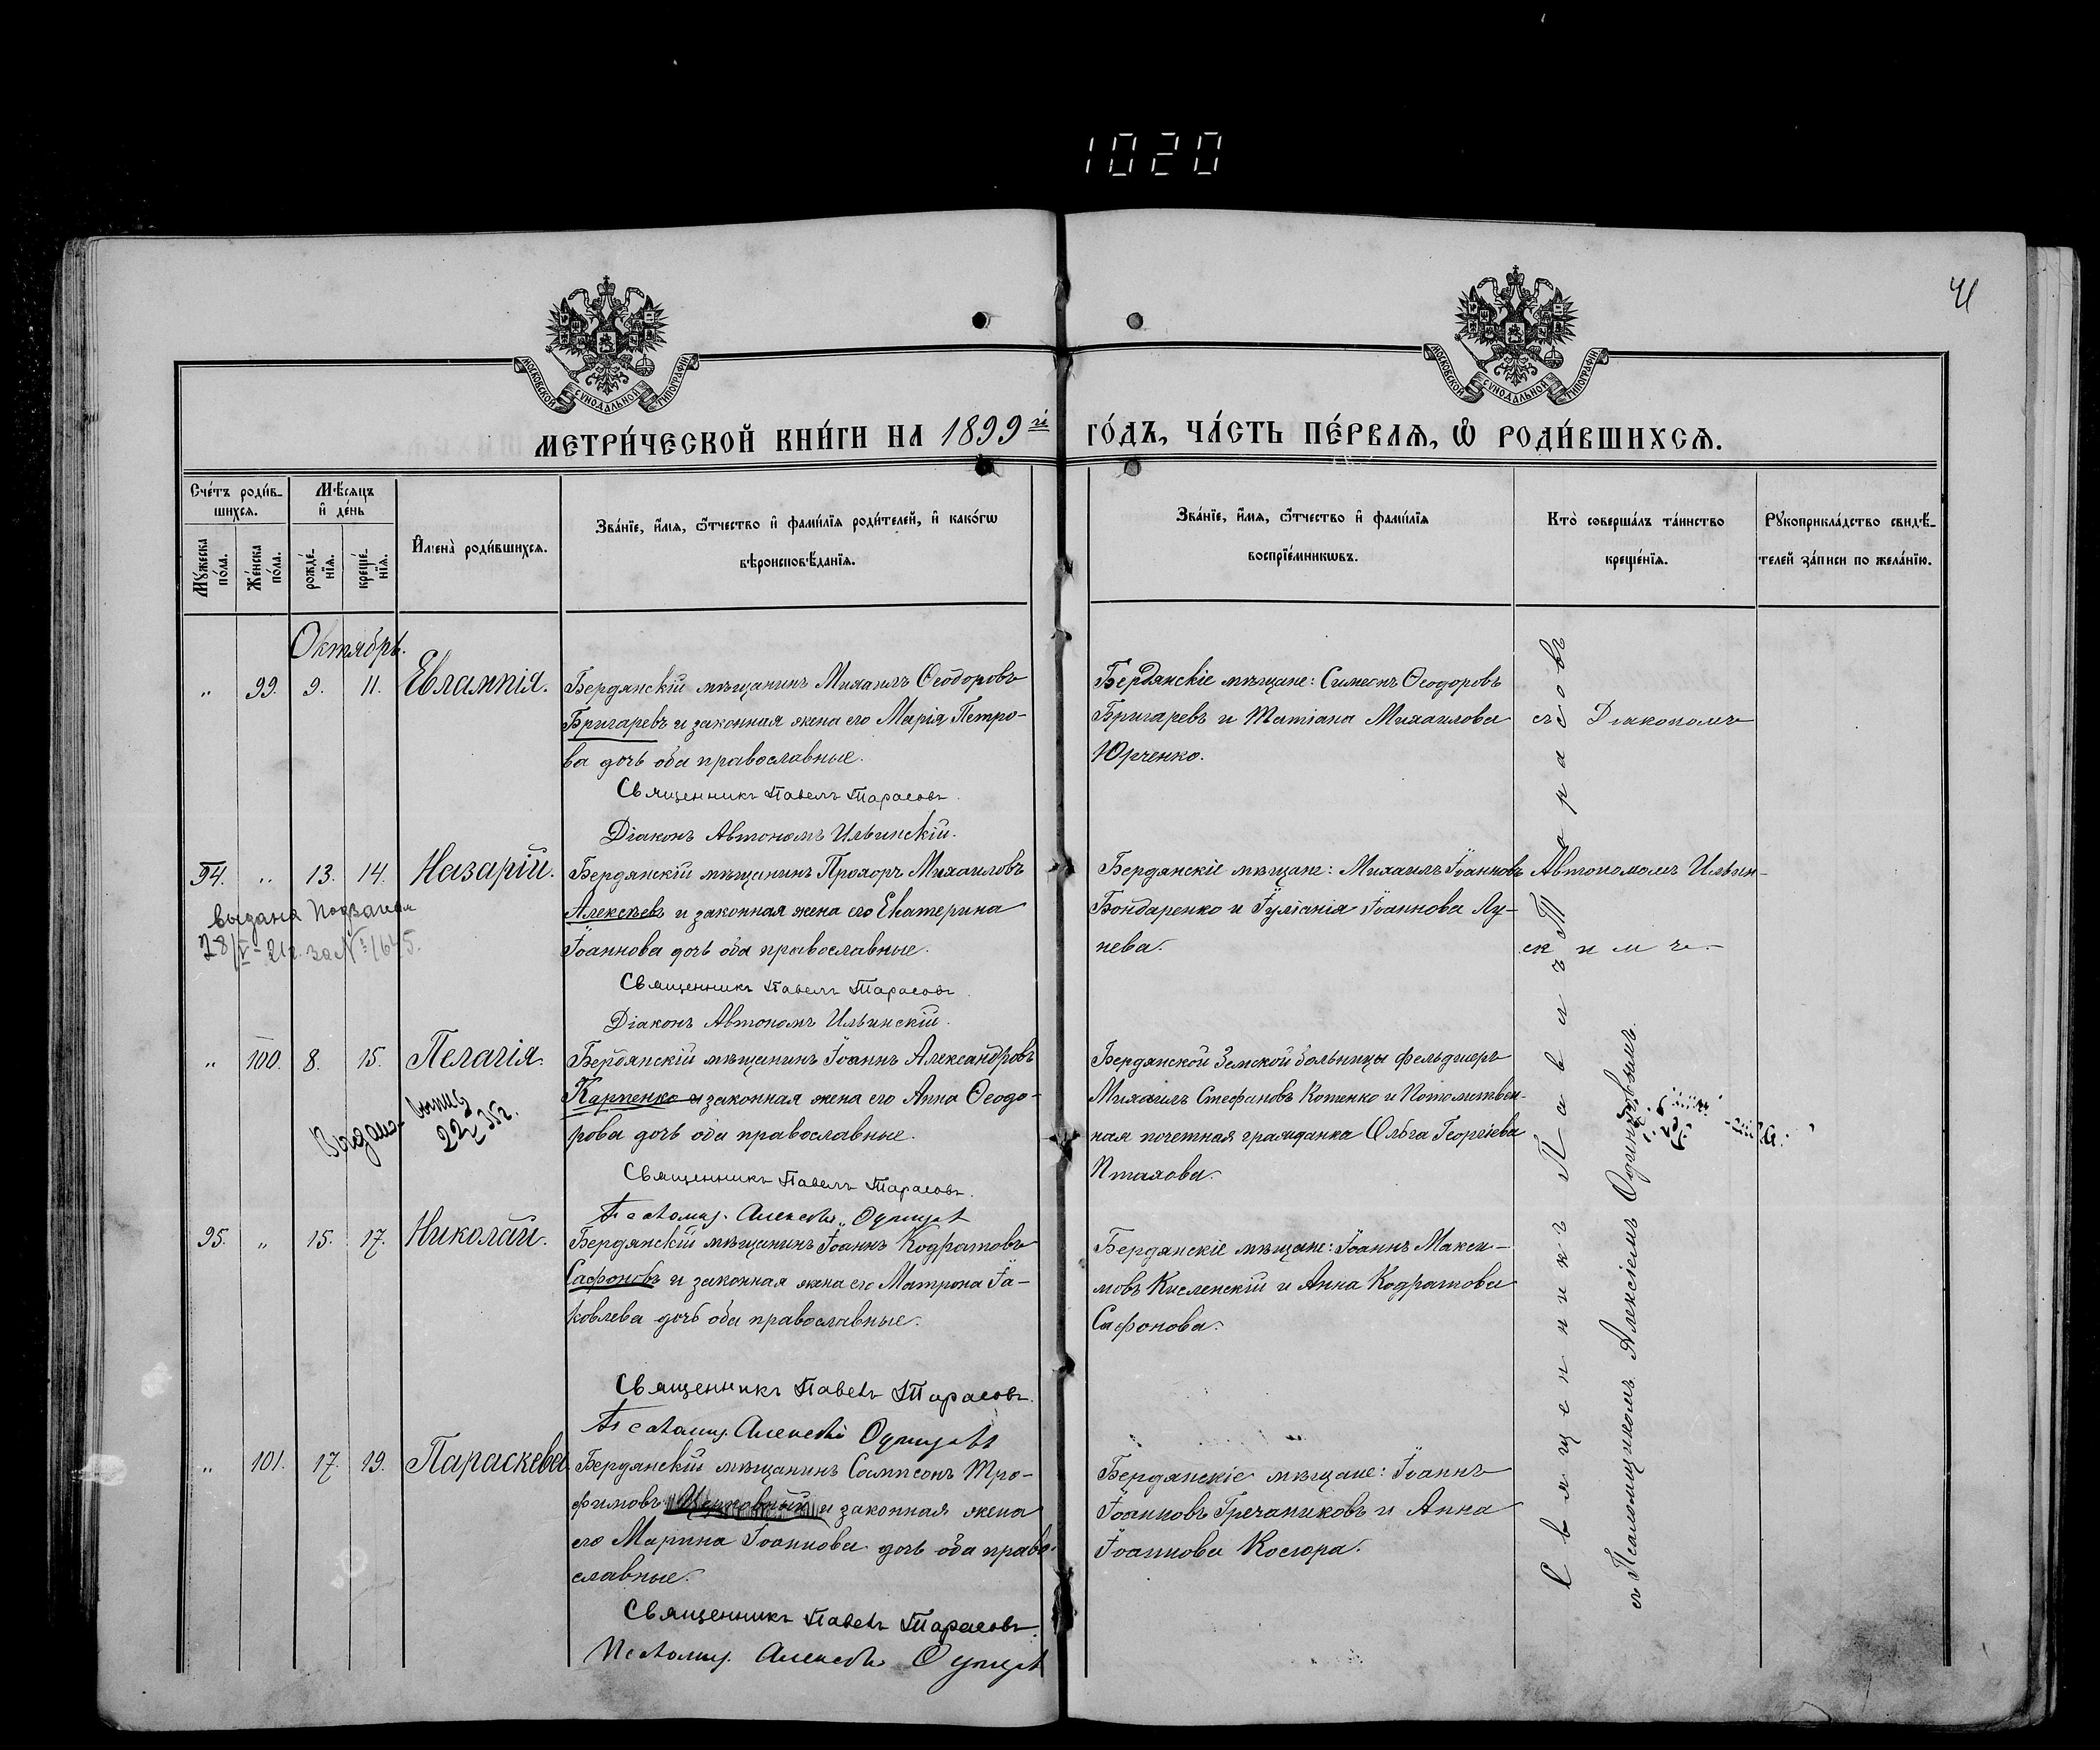 1020
41
МОСКОВСКОЙ СѴНОДАЛЬНОЙ ТИПОГРАФІИ
МОСКОВСКОЙ СѴНОДАЛЬНОЙ ТИПОГРАФІИ
МЕТРИ́ЧЕСКОЙ КНИ́ГИ НА 1899й ГО́ДЪ, ЧА́СТЬ ПЕ́РВАѦ, Ѡ҆ РОДИ́ВШИХСѦ.
Сче́тъ роди́в-
шихсѧ.
Мꙋ́жеска по́ла.
Же́нска по́ла.
Мѣ́сяцъ
и҆ де́нь
рожде́-нїѧ.
креще́-нїѧ.
И҆мена̀ роди́вшихсѧ.
Зва́нїе, и҆́мѧ, ѻ҆́тчество и҆ фами́лїѧ роди́телей, и҆ како́гѡ
вѣроисповѣ́данїѧ.
Зва́нїе, и҆́мѧ, ѻ҆́тчество и҆ фами́лїѧ
воспрїе́мникѡвъ.
Кто̀ соверша́лъ та́инство
креще́нїѧ.
Рꙋкоприкла́дство свидѣ́-
телей за́писи по жела́нїю.
Октябрь.
„ 99. 9. 11. Евлампія.
Бердянскій мѣщанинъ Михаилъ Ѳеодоровъ
Бригаревъ и законная жена его Марія Петро-
ва дочь оба православные.
Священникъ Павелъ Тарасовъ.
Діаконъ Автономъ Ильинскій.
Бердянскіе мѣщане: Симеонъ Ѳеодоровъ
Бригаревъ и Татіана Михаилова
Юрченко.
94. „ 13. 14. Назарій.
выдана
28/V-21г. за № 1645.
Бердянскій мѣщанинъ Прохоръ Михаиловъ
Алексѣевъ и законная жена его Екатерина
Іоаннова дочь оба православные.
Священникъ Павелъ Тарасовъ.
Діаконъ Автономъ Ильинскій.
Бердянскіе мѣщане: Михаилъ Іоанновъ
Бондаренко и Іуліанія Іоаннова Лу-
нева.
„ 100. 8. 15. Пелагія.
Выдана выпись
22 35г.
Бердянскій мѣщанинъ Іоаннъ Александровъ
Карпенко и законная жена его Анна Ѳеодо-
рова дочь оба православные.
Священникъ Павелъ Тарасовъ.
Псаломщ. Алексѣй Одинцовъ
Бердянской Земской больницы фельдшеръ
Михаилъ Стефановъ Котенко и Потомствен-
ная почетная гражданка Ольга Георгіева
Птахова.
95. „ 15. 17. Николай.
Бердянскій мѣщанинъ Іоаннъ Кодратовъ
Сафоновъ и законная жена его Матрона Іа-
ковлева дочь оба православные.
Священникъ Павелъ Тарасовъ.
Псаломщ. Алексѣй Одинцовъ
Бердянскіе мѣщане: Іоаннъ Макси-
мовъ Кисленскій и Анна Кодратова
Сафонова.
„ 101. 17. 19. Параскева.
Бердянскій мѣщанинъ Сампсонъ Тро-
фимовъ и законная жена
его Марина Іоаннова дочь оба право-
славные.
Священникъ Павелъ Тарасовъ.
Псаломщ. Алексѣй Одинцовъ
Бердянскіе мѣщане: Іоаннъ
Іоанновъ Гречаниковъ и Анна
Іоаннова Косюра.
Священникъ Павелъ Тарасовъ
съ Діакономъ
Автономомъ Ильин-
скимъ.
съ Псаломщикомъ Алексіемъ Одинцовымъ.